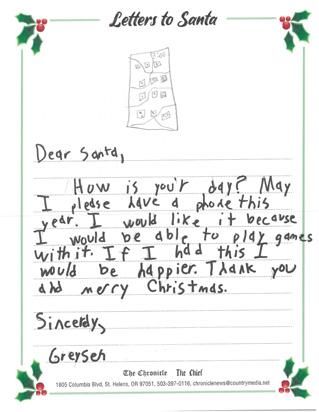 Letters to Santa
Dear Santa,
How is you'r day? May
I please have a phone this
year. I would like it because
I would be able to play games
with it. If I had this I
would be happier. Thank you
and merry Christmas.
Sincerly,
Greysen
The Chronicle The Chief
1805 Columbia Blvd, St. Helens, OR 97051, 503-397-0116, chroniclenews@countrymedia.net